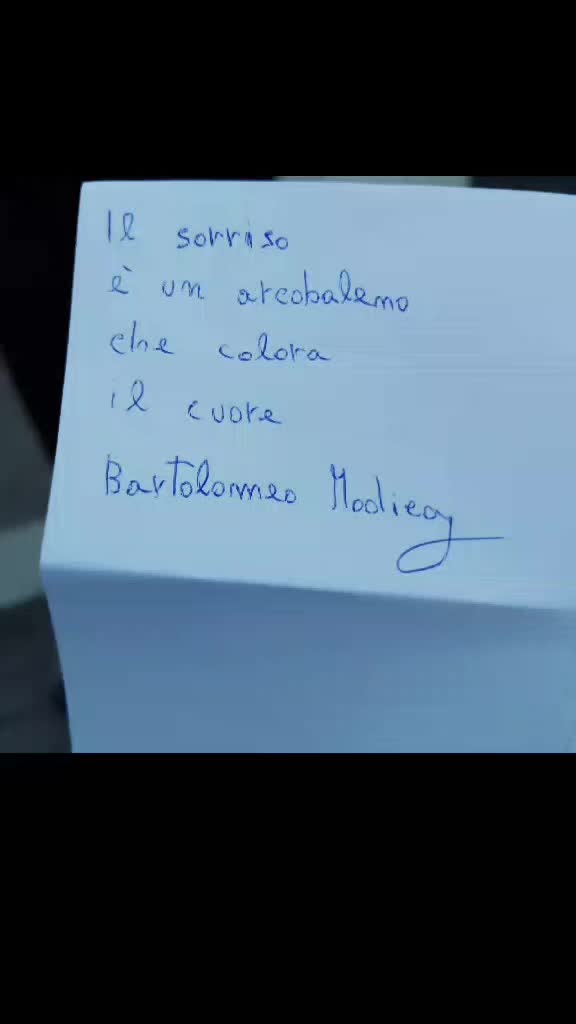 Il sorriso
è un arcobaleno
che colora
il cuore
Bartolomeo